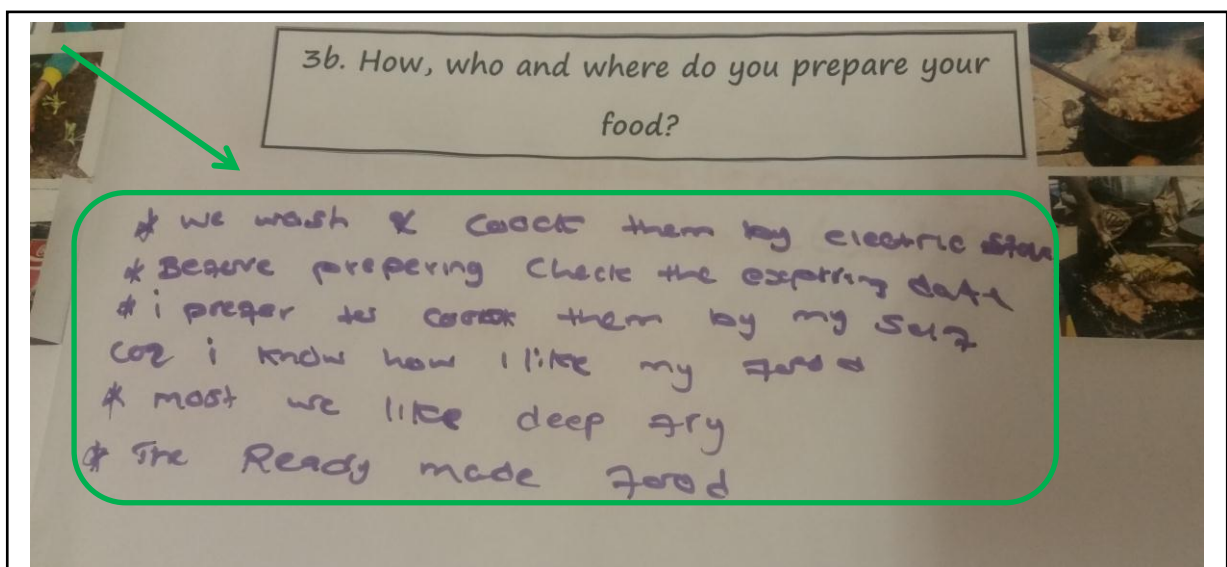 3b. How, who and where do you prepare your
food?
* we wash & coock them by electric stove
* Before prepering check the expiring date
* i prefer to coock them by my self
coz i know how i like my food
* most we like deep fry
* The Ready made food